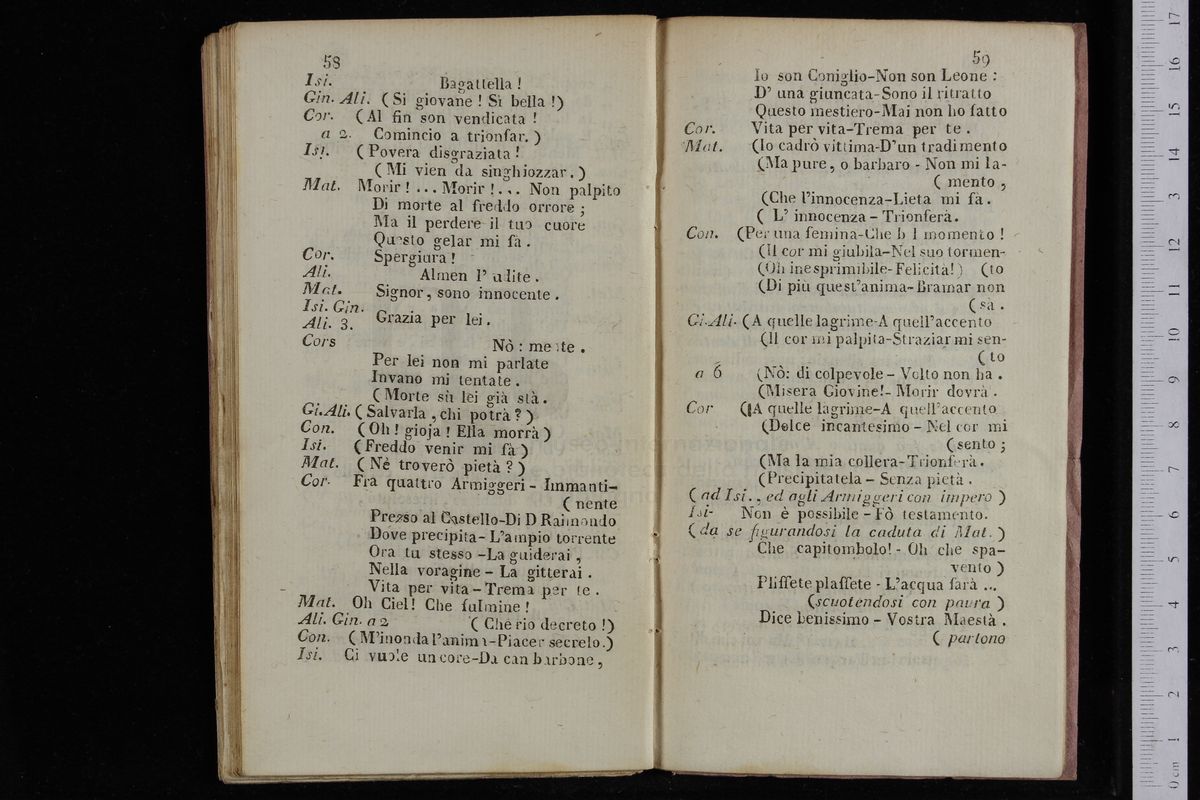 58
Isi. Bagattella !
Gin. Ali. ( Si giovane ! Si bella !)
Cor. (Al fin son vendicata !
a 2. Comincio a trionfar. )
Isi. ( Povera disgraziata !
( Mi vien da singhiozzar. )
Mat. Morir ! ... Morir ! ... Non palpito
Di morte al freddo orrore ;
Ma il perdere il tuo cuore
Questo gelar mi fà .
Cor. Spergiura !
Ali. Almen l' udite .
Mat. Signor, sono innocente .
Isi. Gin.
Ali. 3. Grazia per lei .
Cors Nò : mente .
Per lei non mi parlate
Invano mi tentate .
( Morte sù lei già stà .
Gi. Ali. ( Salvarla , chi potrà ? )
Con. ( Oh ! gioja ! Ella morrà )
Isi. (Freddo venir mi fà )
Mat. ( Nè troverò pietà ? )
Cor. Frà quattro Armiggeri - Immanti-
( nente
Presso al Castello-Di D Raimondo
Dove precipita - L'ampio torrente
Ora tu stesso -La guiderai ,
Nella voragine - La gitterai .
Vita per vita - Trema per te .
Mat. Oh Ciel ! Che fulmine !
Ali. Gin. a 2 ( Che rio decreto !)
Con. ( M'inonda l'anima-Piacer secreto.)
Isi. Ci vuole un core-Da can barbone ,
59
Io son Coniglio-Non son Leone :
D' una giuncata-Sono il ritratto
Questo mestiero-Mai non ho fatto
Cor. Vita per vita-Trema per te .
Mat. (Io cadrò vittima-D'un tradimento
(Ma pure , o barbaro - Non mi la-
( mento ,
(Che l'innocenza-Lieta mi fà .
( L' innocenza - Trionferà.
Con. (Per una femina-Che b l momento !
(Il cor mi giubila-Nel suo tormen-
(Oh inesprimibile- Felicità! ) (to
(Di più quest'anima-Bramar non
( sà .
Gi. Ali. ( A quelle lagrime-A quell'accento
(Il cor mi palpita-Straziar mi sen-
( to
a 6 (Nò: di colpevole - Volto non ha .
(Misera Giovine!- Morir dovrà .
Cor (A quelle lagrime-A quell'accento
(Dolce incantesimo - Nel cor mi
( sento ;
(Ma la mia collera-Trionferà .
(Precipitatela - Senza pietà .
( ad Isi. , ed agli Armiggeri con impero )
Isi- Non è possibile - Fò testamento.
( da se figurandosi la caduta di Mat. )
Che capitombolo! - Oh che spa-
vento )
Pliffete plaffete - L'acqua farà ...
(scuotendosi con paura )
Dice benissimo - Vostra Maestà .
( partono
0 cm 1 2 3 4 5 6 7 8 9 10 11 12 13 14 15 16 17